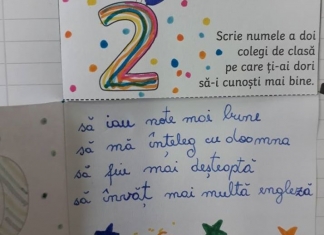 2
Scrie numele a doi
colegi de clasă
pe care ți-ai dori
să-i cunoști mai bine.
să iau note mai bune
să mă înțeleg cu doomna
să fiu mai deșteaptă
să învăț mai multă engleză